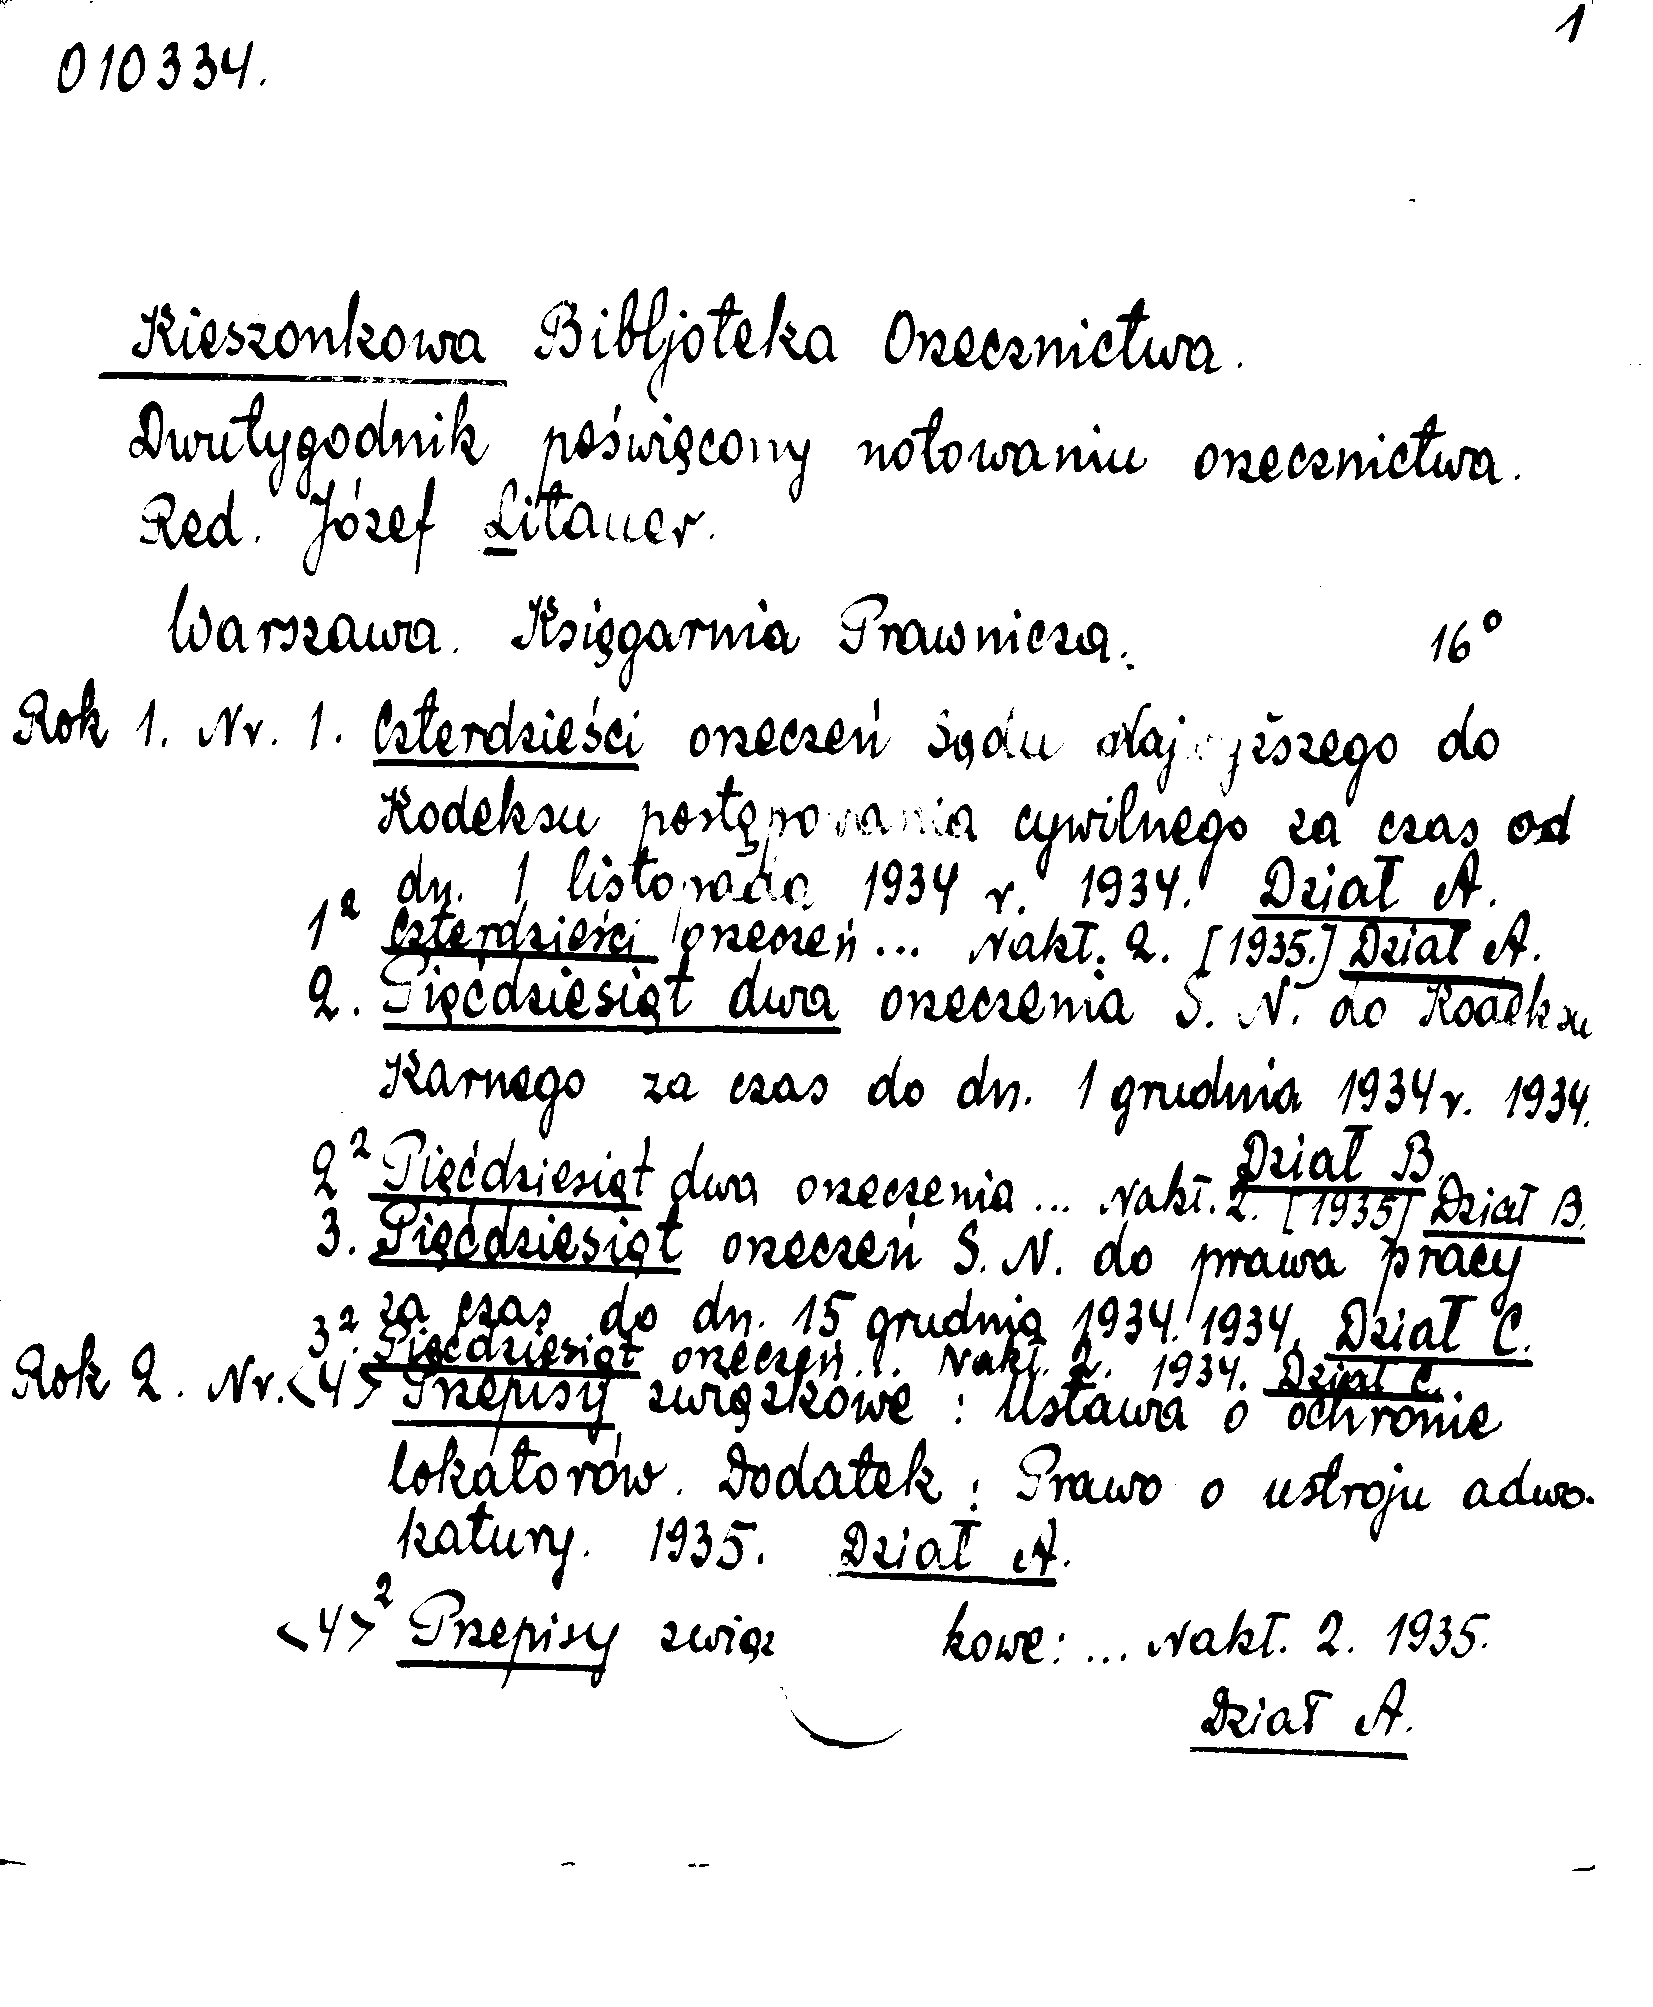 1
010334.
Kieszonkowa Bibljoteka Orzecznictwa.
Dwutygodnik poświęcony notowaniu orzecznictwa.
Red. Józef Litauer.
Warszawa. Księgarnia Prawnicza. 16°
Rok 1. Nr. 1. Czterdzieści orzeczeń Sądu Najwyższego do
Kodeksu postępowania cywilnego za czas od
dn. 1 listopada 1934 r. 1934. Dział A.
1² Czterdzieści orzeczeń... Nakł. 2. [1935.] Dział A.
2. Pięćdziesiąt dwa orzeczenia S. N. do Kodeksu
Karnego za czas do dn. 1 grudnia 1934 r. 1934.
Dział B
2² Pięćdziesiąt dwa orzeczenia... Nakł. 2. [1935] Dział B.
3. Pięćdziesiąt orzeczeń S. N. do prawa pracy
za czas do dn. 15 grudnia 1934. 1934. Dział C.
3². Pięćdziesiąt orzeczeń... Nakł. 2. 1934. Dział C.
Rok 2. Nr. <4> Przepisy związkowe : Ustawa o ochronie
lokatorów. Dodatek : Prawo o ustroju adwo-
katury. 1935. Dział A.
<4>² Przepisy związ kowe: ... Nakł. 2. 1935.
Dział A.